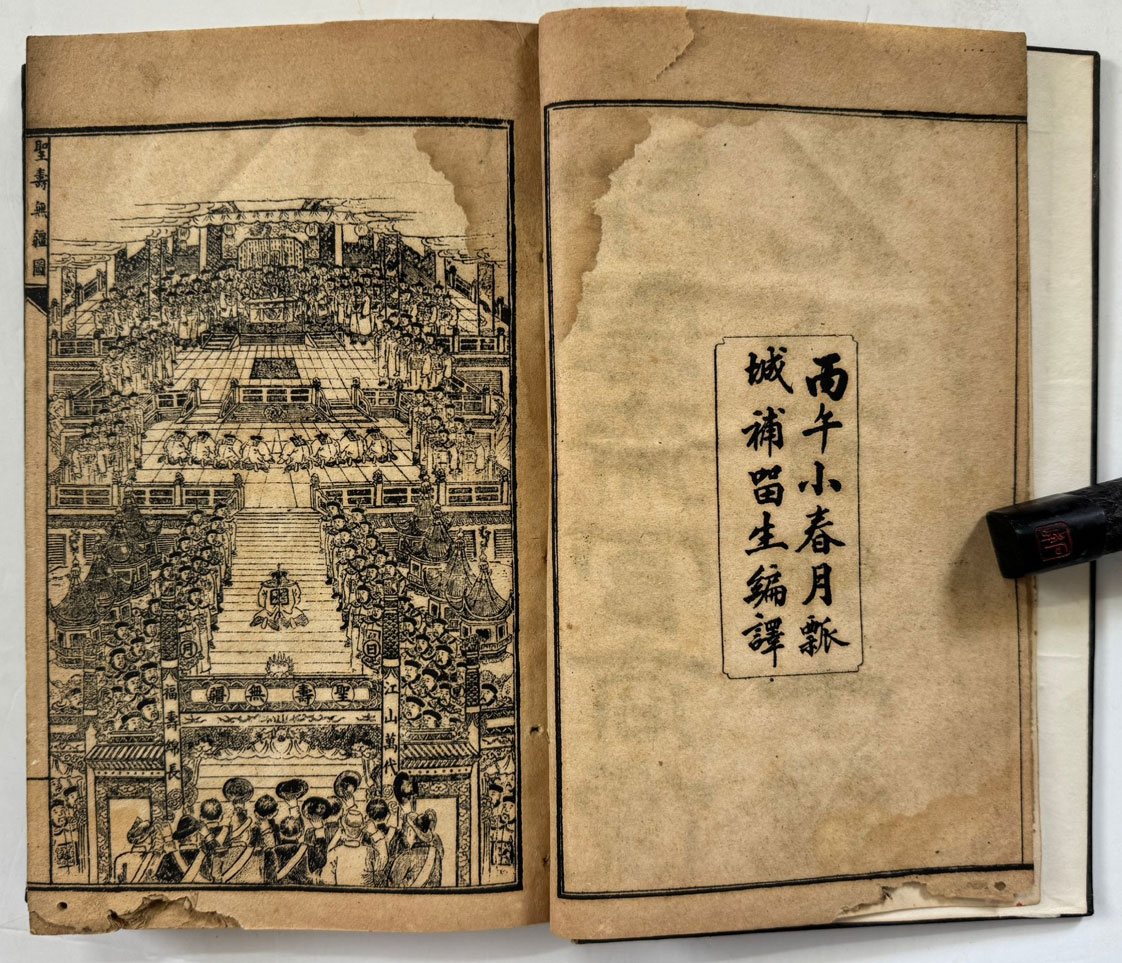 丙午小春月瓢
城補畱生編譯
聖壽無疆圖
聖壽無疆
日
月
江山萬代
福壽綿長